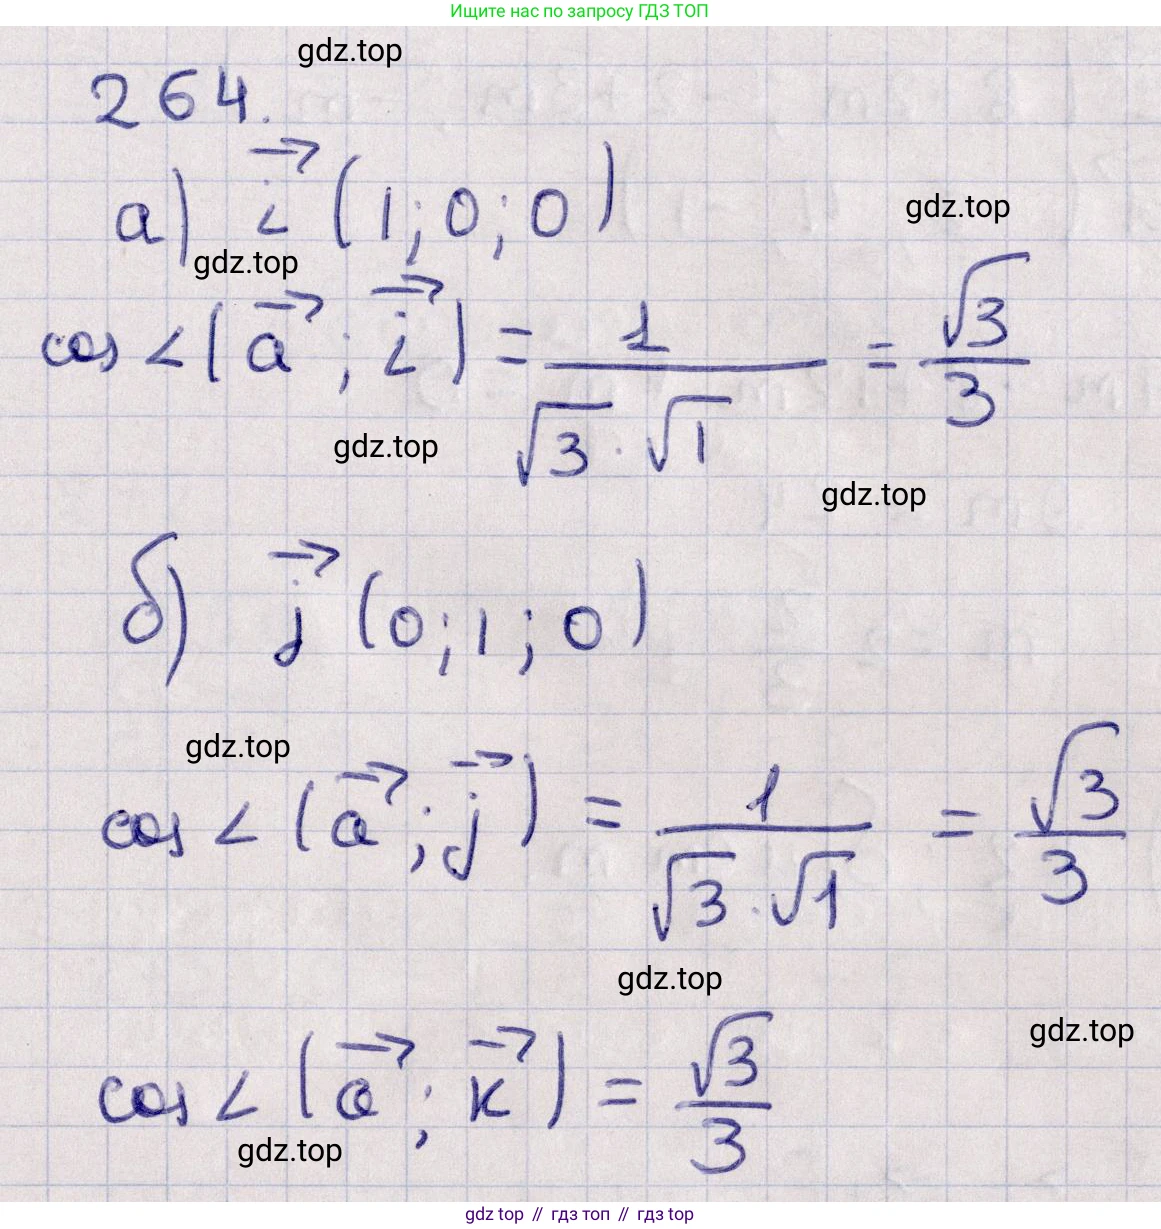 Ищите нас по запросу ГДЗ ТОП
gdz.top
264.
а) i⃗ (1; 0; 0)
gdz.top
gdz.top
cos ∠(a⃗; i⃗) = 1/(√3 · √1) = √3/3
gdz.top
gdz.top
б) j⃗ (0; 1; 0)
gdz.top
cos ∠(a⃗; j⃗) = 1/(√3 · √1) = √3/3
gdz.top
gdz.top
cos ∠(a⃗; k⃗) = √3/3
gdz.top
gdz top // гдз топ // gdz top